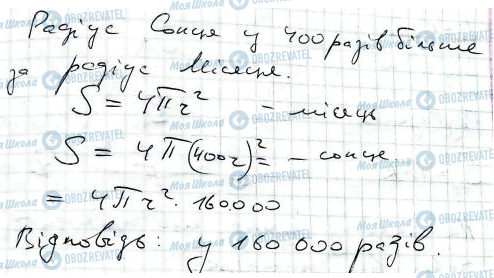 Радіус Сонця у 400 разів більше
за радіус Місяця.
S = 4πr² – місяць
S = 4π(400r)² = – сонце
= 4πr² · 160000
Відповідь: у 160 000 разів.
Моя Школа OBOZREVATEL